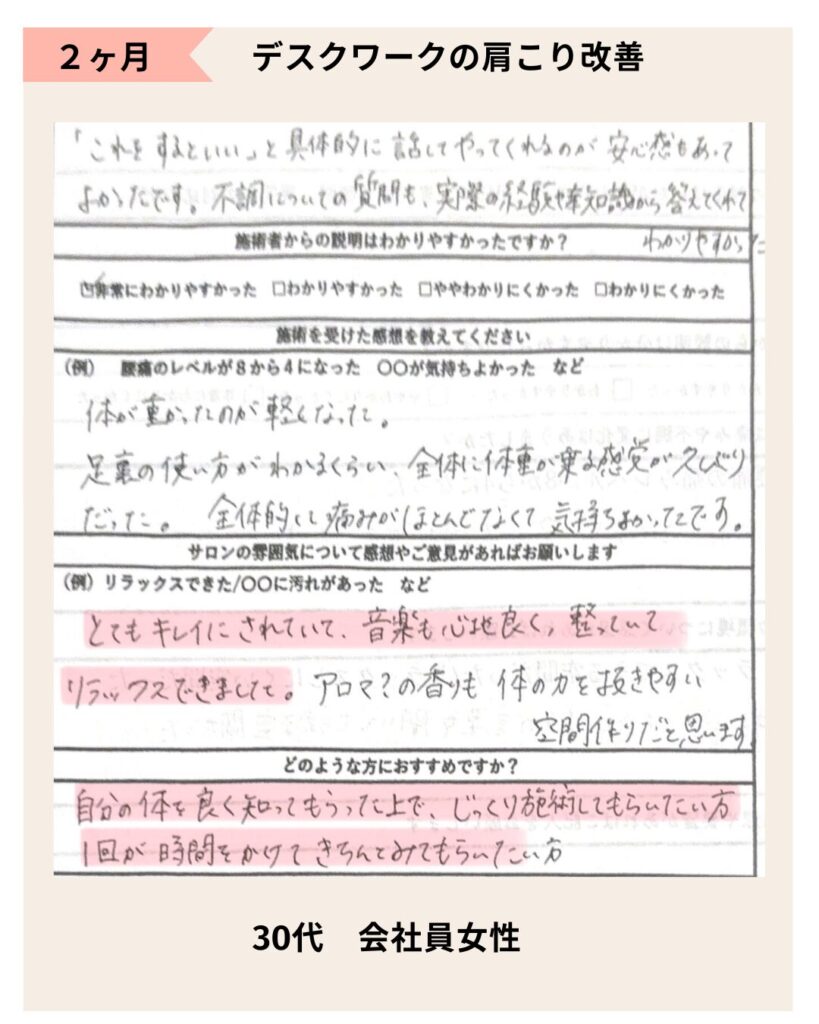 ２ヶ月
デスクワークの肩こり改善
「これをするといい」と具体的に話してやってくれるのが安心感もあって
よかったです。不調についての質問も、実際の経験や知識から答えてくれて
わかりやすかった
施術者からの説明はわかりやすかったですか？
☑非常にわかりやすかった □わかりやすかった □ややわかりにくかった □わかりにくかった
施術を受けた感想を教えてください
（例） 腰痛のレベルが８から４になった 〇〇が気持ちよかった など
体が重かったのが軽くなった。
足裏の使い方がわかるくらい、全体に体重が乗る感覚が久しぶり
だった。 全体的にも痛みがほとんどなくて気持ちよかったです。
サロンの雰囲気について感想やご意見があればお願いします
（例）リラックスできた/〇〇に汚れがあった など
とてもキレイにされていて、音楽も心地良く、整っていて
リラックスできました。アロマ？の香りも体の力を抜きやすい
空間作りだと思います
どのような方におすすめですか？
自分の体を良く知ってもらった上で、じっくり施術してもらいたい方
1回が時間をかけてきちんとみてもらいたい方
30代 会社員女性